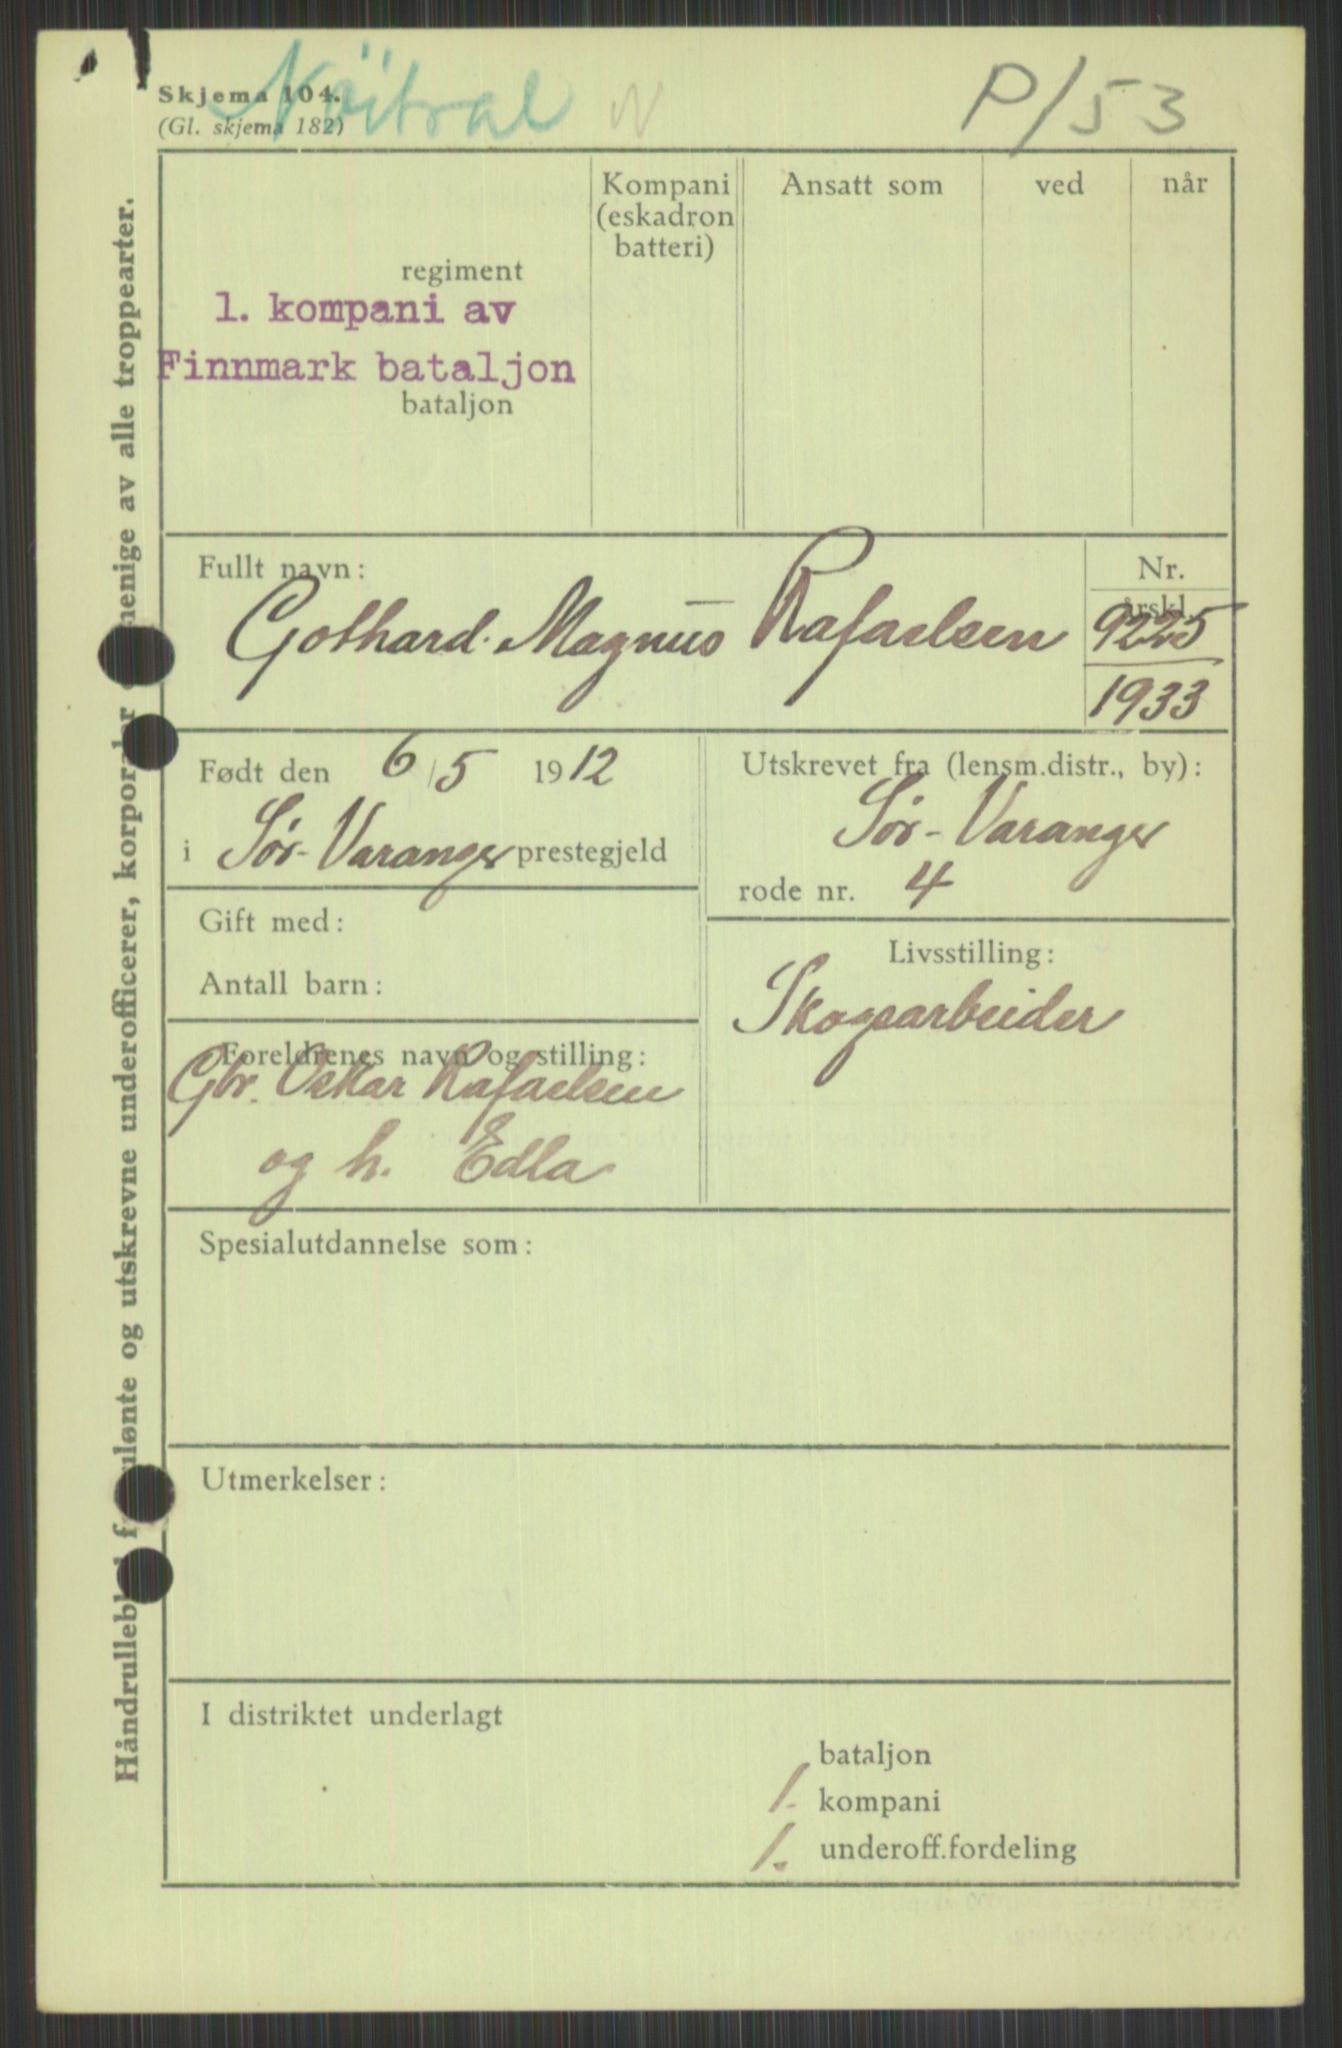 Skjema 104.
(Gl. skjema 182)
Nöitral
N
P/53
Kompani
(eskadron
batteri)
Ansatt som
ved
når
regiment
1. kompani av
Finnmark bataljon
bataljon
Fullt navn:
Gothard. Magnus Rafaelsen
Nr.
årskl.
9225
1933
Født den 6/5 1912
i Sør-Varanger prestegjeld
Utskrevet fra (lensm.distr., by):
Sør-Varanger
rode nr. 4
Gift med:
Antall barn:
Livsstilling:
Skogsarbeider
Foreldrenes navn og stilling:
Gbr. Oskar Rafaelsen
og h. Edla
Spesialutdannelse som:
Utmerkelser:
I distriktet underlagt
bataljon
1. kompani
1. underoff.fordeling
og utskrevne underofficerer, korporaler menige av alle troppearter.